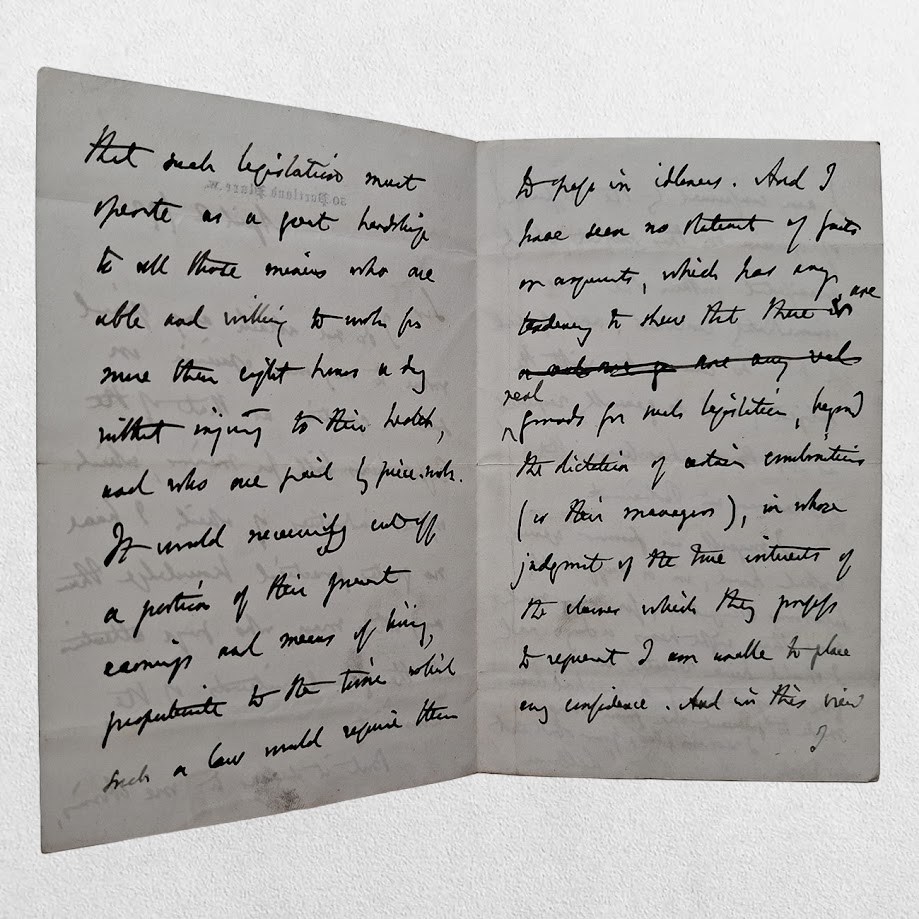 that such legislation must
operate as a great hardship
to all those miners who are
able and willing to work for
more than eight hours a day
without injury to their health,
and who are paid by piece-work.
It would necessarily cut off
a portion of their present
earnings and means of living,
proportionate to the time which
such a law would require them
to pass in idleness. And I
have seen no statement of facts
or arguments, which has any
tendency to shew that there is are
are any real
real
grounds for such legislation, beyond
the dictation of certain combinations
(or their managers), in whose
judgment of the true interests of
the classes which they profess
to represent I am unable to place
any confidence. And in this view
I
30 Portland Place W.